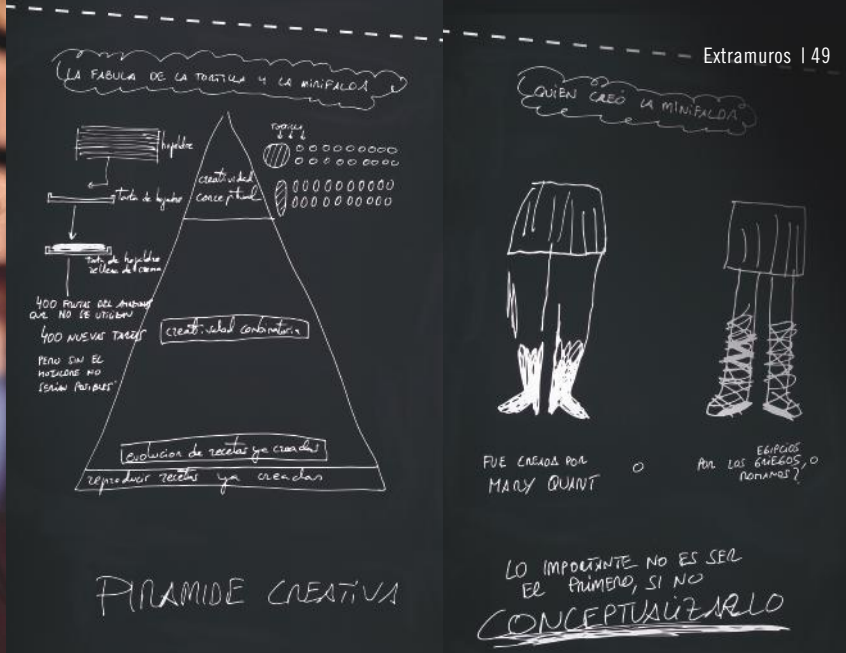 Extramuros | 49
LA FABULA DE LA TORTILLA Y LA MINIFALDA
hojaldre
torta de hojaldre
torta de hojaldre
rellena de crema
400 FRUTAS DEL AMAZONAS
QUE NO SE UTILIZAN
400 NUEVAS TARTAS
PERO SIN EL
HOJALDRE NO
SERÍAN POSIBLES
TORTILLA
creatividad
conceptual
creatividad combinatoria
evolucion de recetas ya creadas
reproducir recetas ya creadas
PIRAMIDE CREATIVA
QUIEN CREÓ LA MINIFALDA
FUE CREADA POR
MARY QUANT
O
EGIPCIOS
POR LOS GRIEGOS, O
ROMANOS?
LO IMPORTANTE NO ES SER
EL PRIMERO, SI NO
CONCEPTUALIZARLO